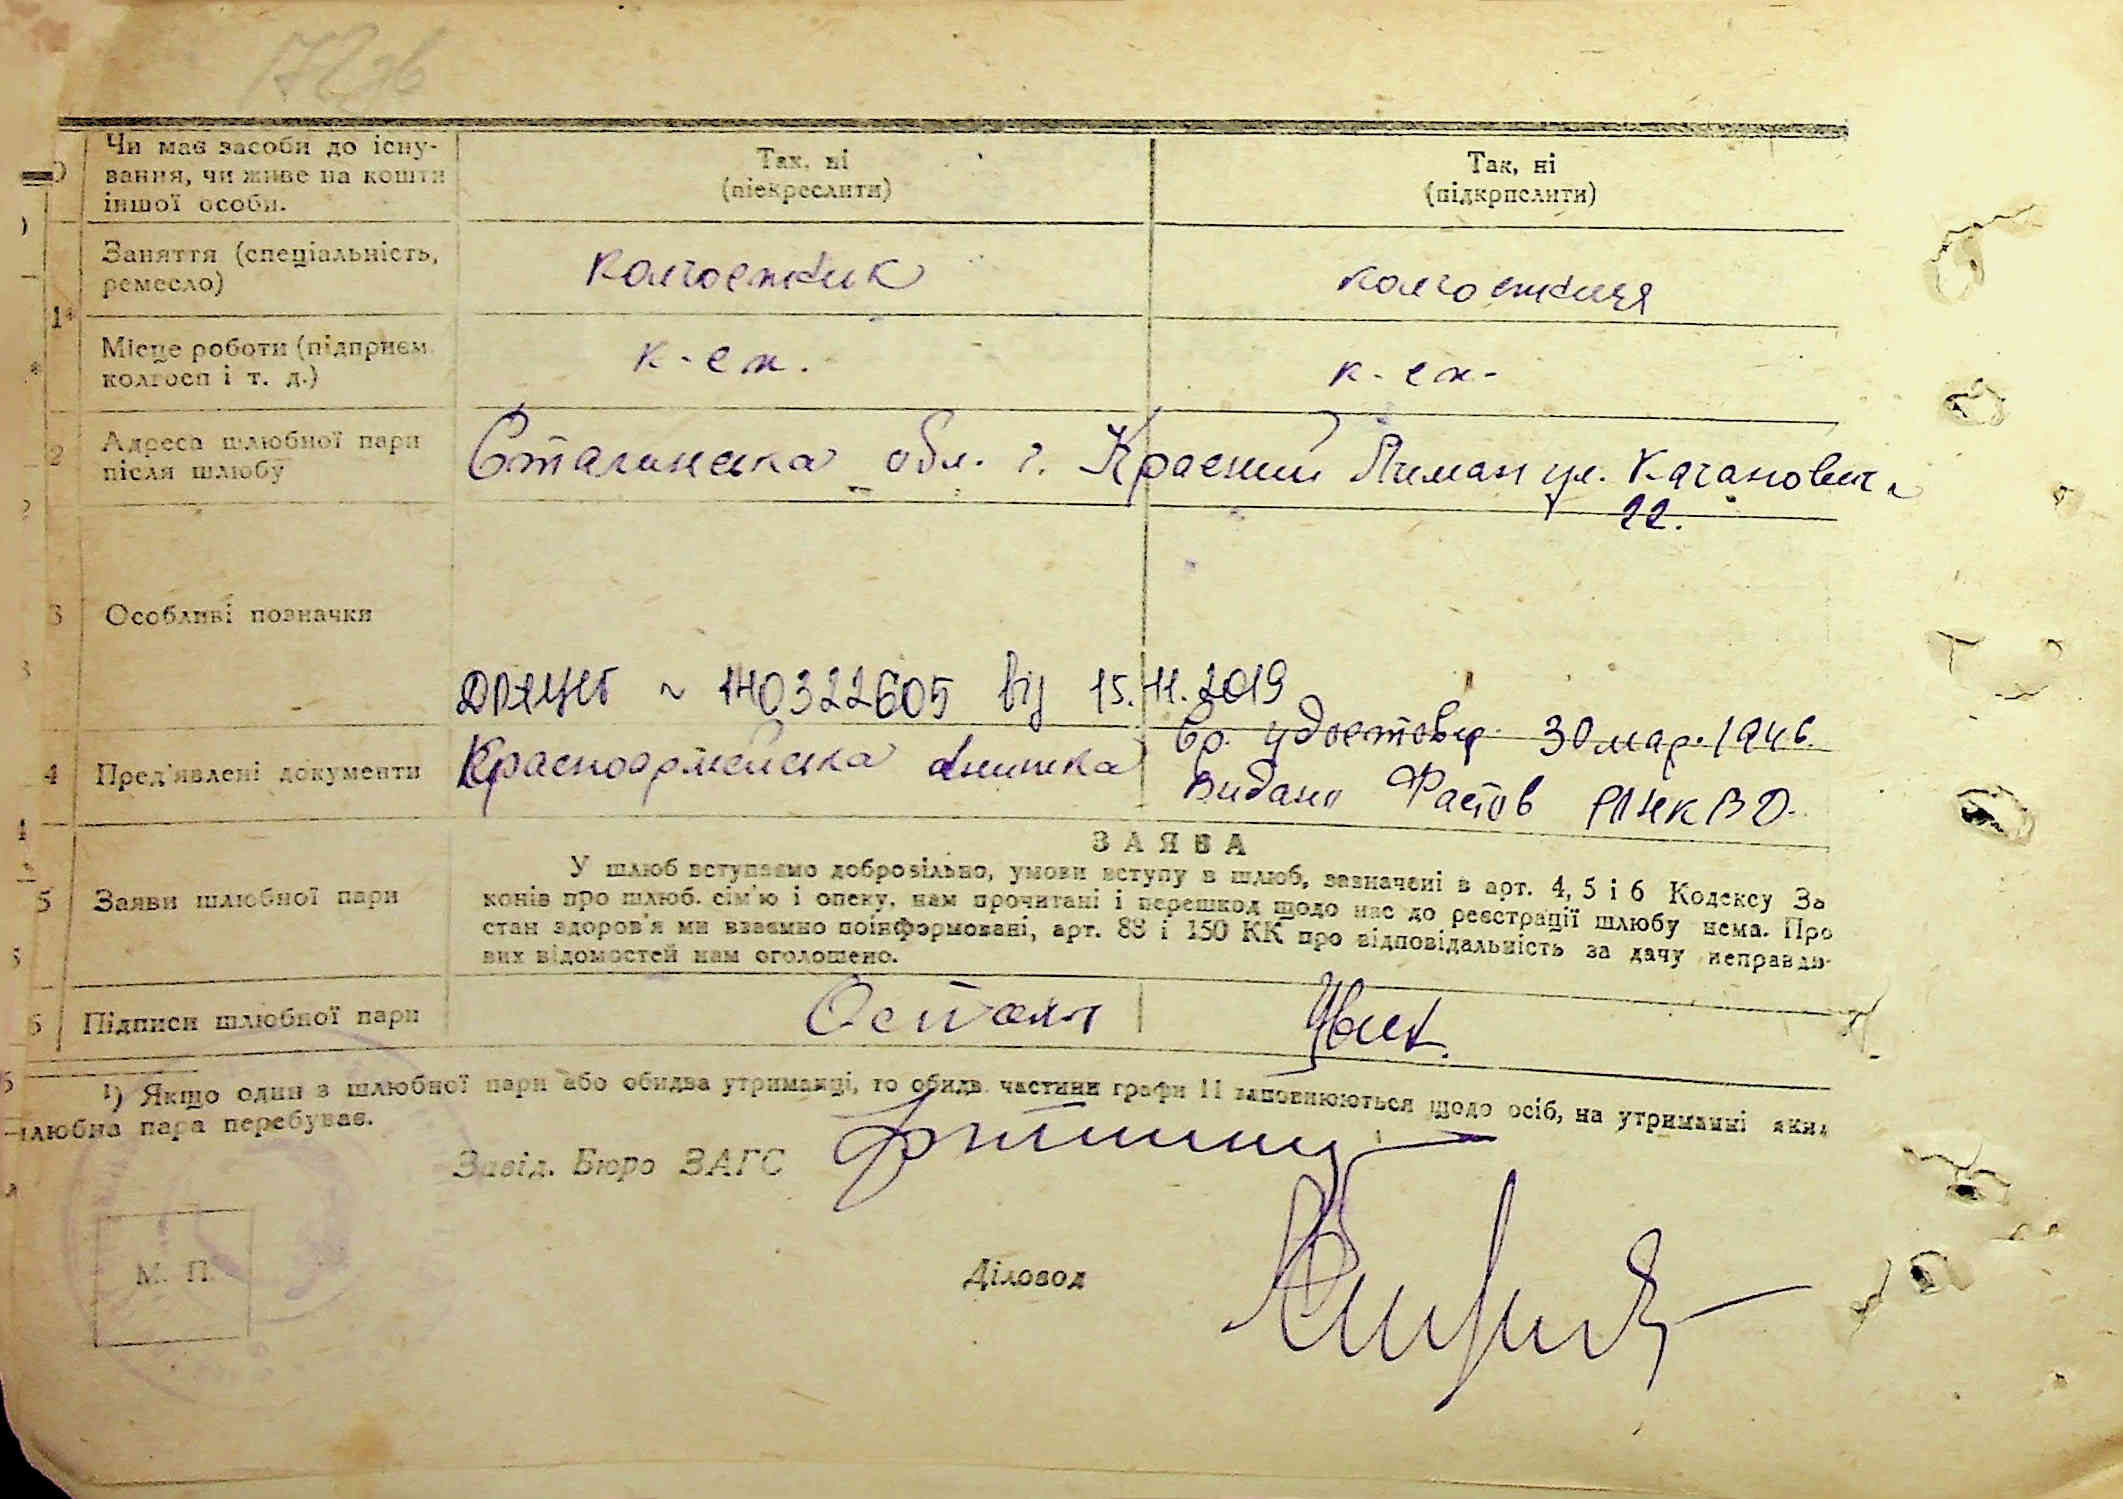 Чи має засоби до існу-
вання, чи живе на кошти
іншої особи.
Так, ні
(піекреслити)
Так, ні
(підкрпслити)
Заняття (спеціальність,
ремесло)
колгоспник
колгоспниця
Місце роботи (підприєм.
колгосп і т. д.)
к-сп.
к-сп-
2
Адреса шлюбної пари
після шлюбу
Сталинська обл. г. Красний Лиман ул. Кагановича
22.
3
Особливі позначки
ДРАЦСГ ~ 140322605 від 15.11.2019
4
Пред'явлені документи
Красноармейська книжка
Вр. удостовер. 30 мар. 1946.
видано Фастов РНКВД.
5
Заяви шлюбної пари
ЗАЯВА
У шлюб вступаємо добровільно, умови вступу в шлюб, зазначені в арт. 4, 5 і 6 Кодексу За
конів про шлюб. сім'ю і опеку, нам прочитані і перешкод щодо нас до реєстрації шлюбу нема. Про
стан здоров'я ми взаємно поінформовані, арт. 88 і 150 КК про відповідальність за дачу неправди-
вих відомостей нам оголошено.
6
Підписи шлюбної пари
¹) Якщо один з шлюбної пари або обидва утриманці, то обидв. частини графи 11 заповнюються щодо осіб, на утриманні яких
шлюбна пара перебуває.
Завід. Бюро ЗАГС
М. П.
Діловод